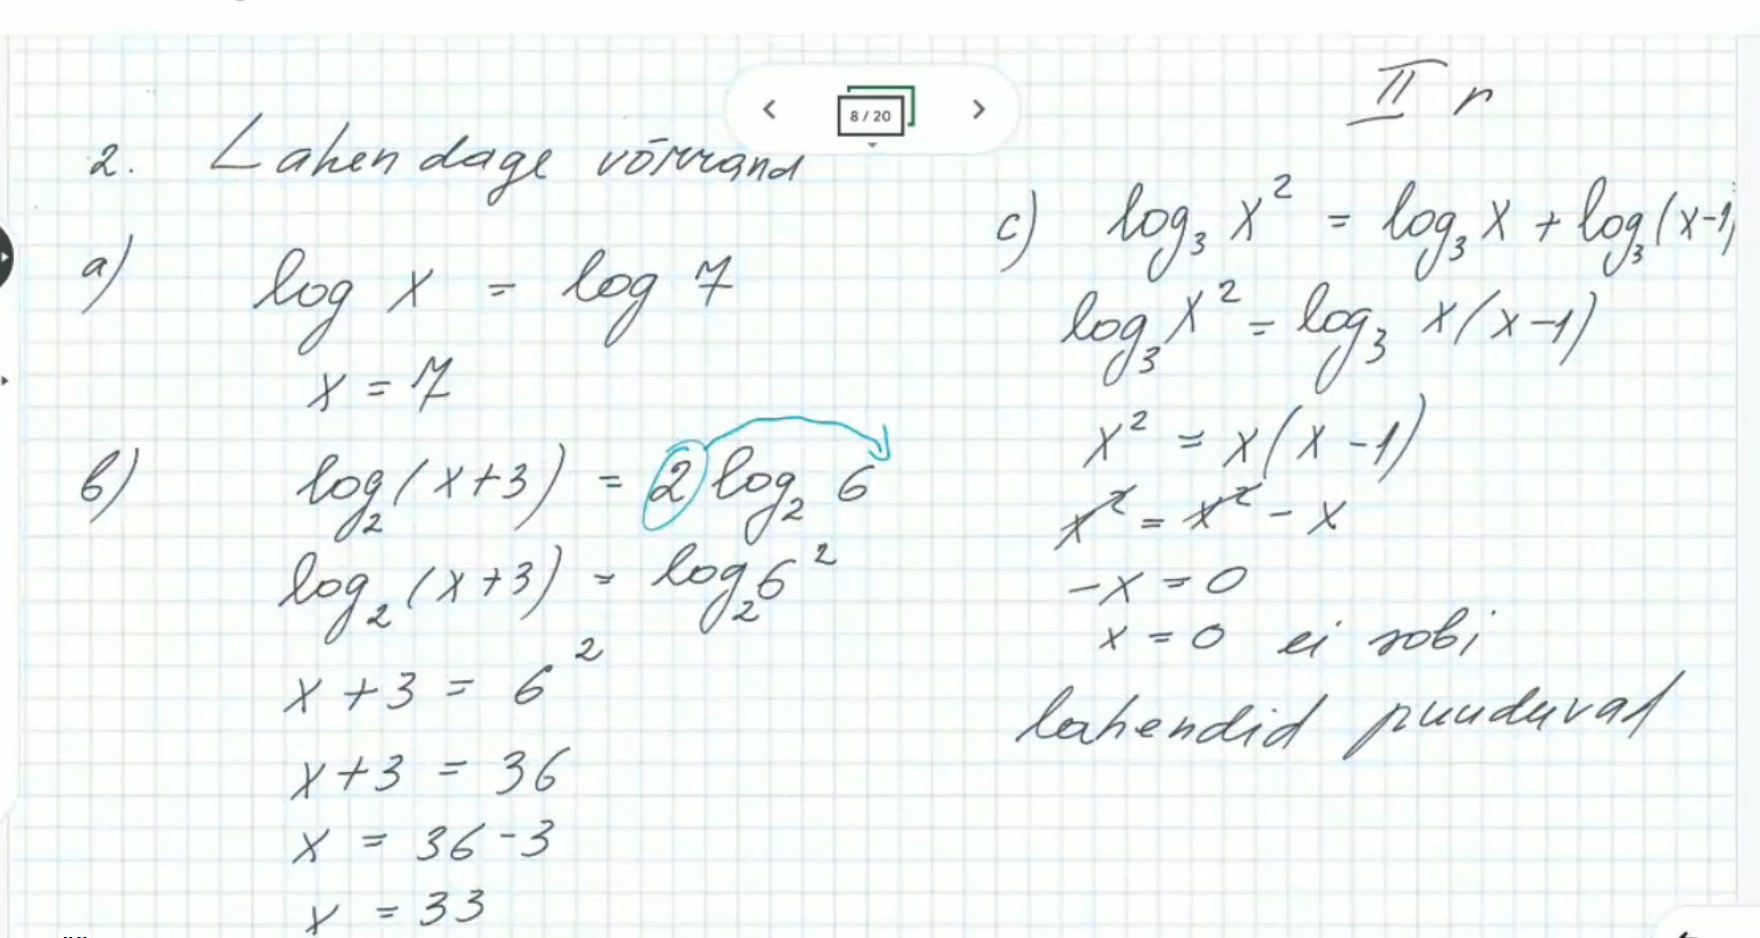 8 / 20
II r
2. Lahendage võrrand
a) log x = log 7
x = 7
b) log₂(x+3) = 2 log₂ 6
log₂(x+3) = log₂6²
x + 3 = 6²
x + 3 = 36
x = 36 - 3
x = 33
c) log₃ x² = log₃ x + log₃(x-1)
log₃ x² = log₃ x(x-1)
x² = x(x-1)
x² = x² - x
-x = 0
x = 0 ei sobi
lahendid puuduvad